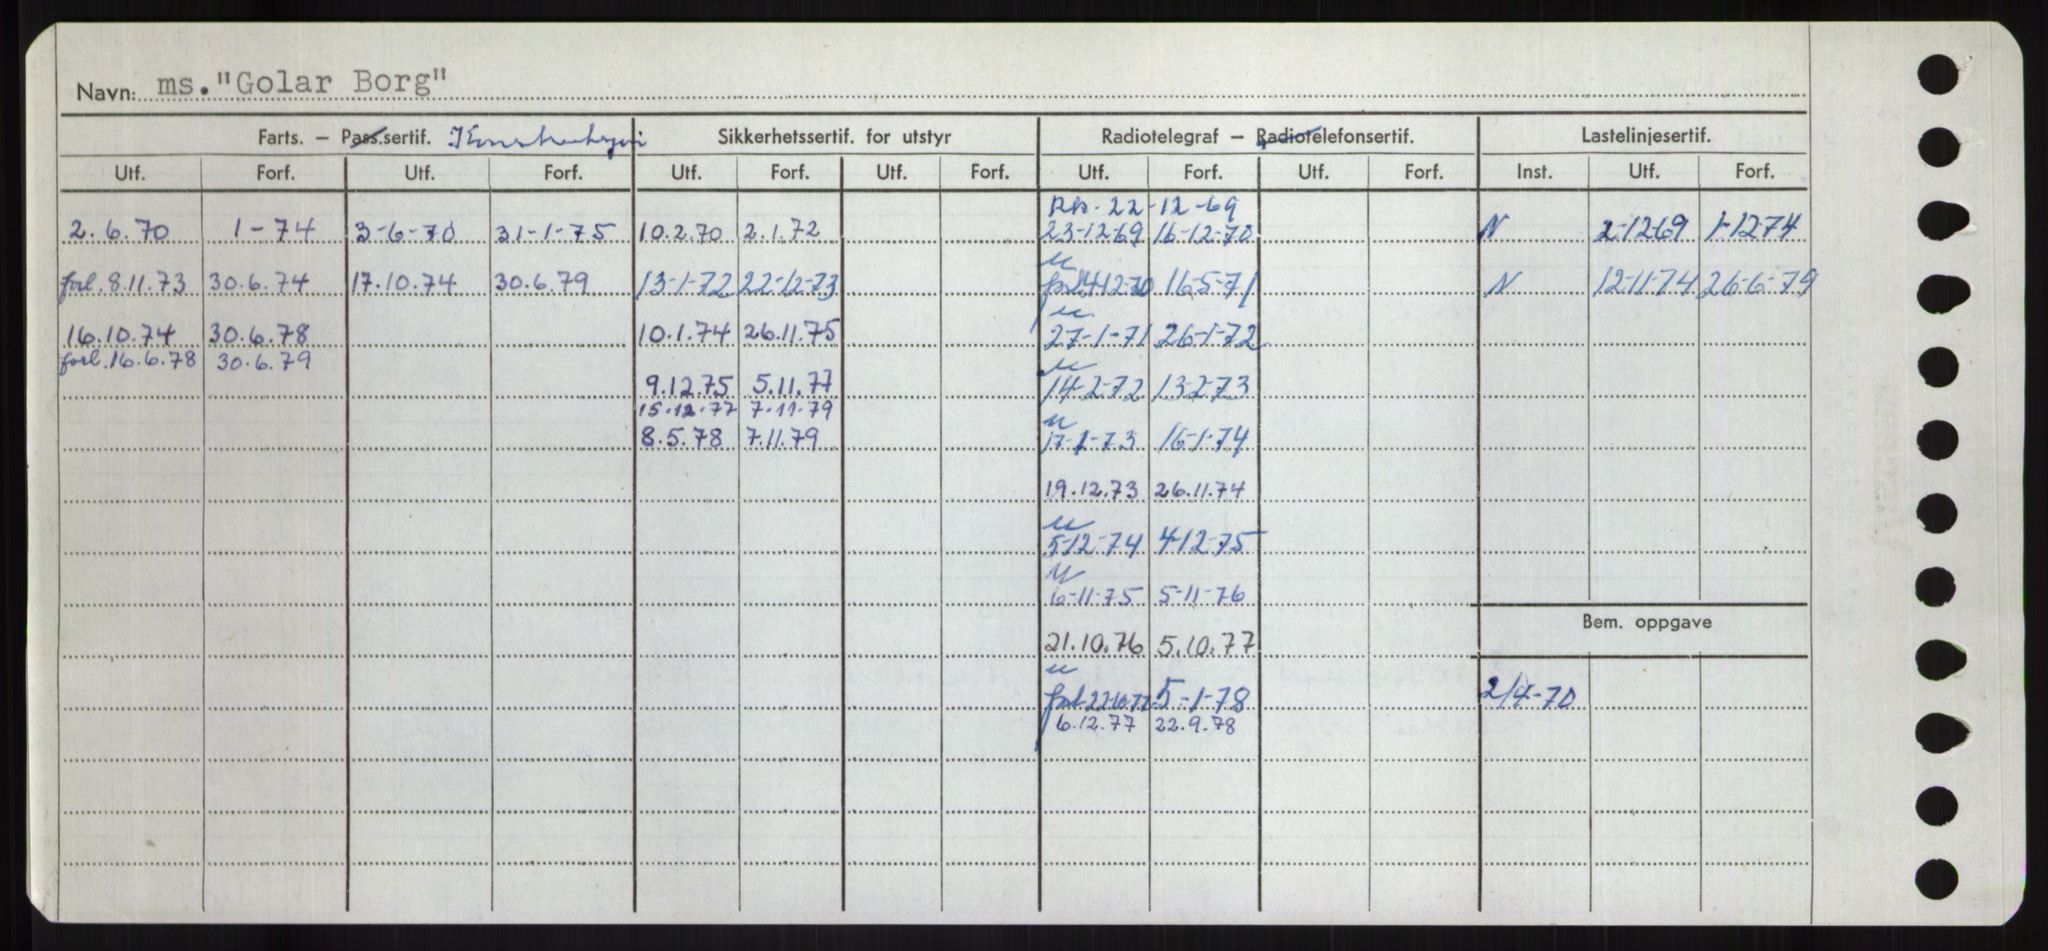 Navn: ms."Golar Borg"
Farts. – Pass.sertif. Konstruksjon Sikkerhetssertif. for utstyr Radiotelegraf – Radiotelefonsertif. Lastelinjesertif.
Utf. Forf. Utf. Forf. Utf. Forf. Utf. Forf. Utf. Forf. Utf. Forf. Inst. Utf. Forf.
22-12-69
2.6.70 1-74 3-6-70 31-1-75 10.2.70 2.1.72 23-12-69 16-12-70 N 2-12-69 1-12-74
forl. 8.11.73 30.6.74 17.10.74 30.6.79 13-1-72 22-12-73 16-5-71 N 12-11-74 26-6-79
16.10.74 30.6.78 10.1.74 26.11.75 27-1-71 26-1-72
forl. 16.6.78 30.6.79
9.12.75 5.11.77 14-2-72 13-2-73
15.12.77 7.11.79
8.5.78 7.11.79 17-1-73 16-1-74
19.12.73 26.11.74
5-12-74 4-12-75
6-11-75 5-11-76
Bem. oppgave
21.10.76 5.10.77
forl. 22-10-77 5-1-78 2/4-70
6.12.77 22.9.78